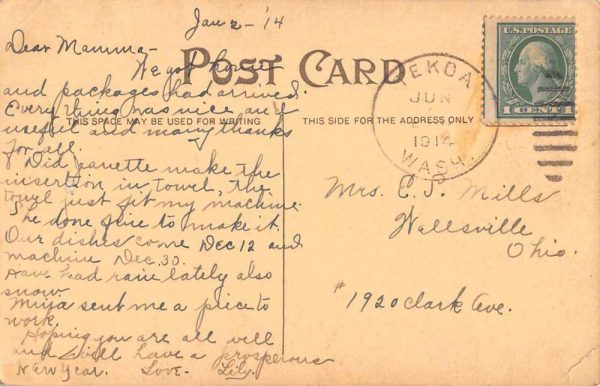 Jan 2 - '14
Dear Mamma -
We got home
and packages had arrived.
Everything was nice and
useful and many thanks
for all.
Did Jeanette make the
insertion in towel, the
towel just fit my machine.
She done fine to make it.
Our dishes come Dec 12 and
machine Dec. 30.
Have had rain lately also
snow.
sent me a piece to
work.
Hoping you are all well
and will have a prosperous
New Year. Love - Lily.
POST CARD
THIS SPACE MAY BE USED FOR WRITING
THIS SIDE FOR THE ADDRESS ONLY
TEKOA
JUN
1914
WASH.
U.S. POSTAGE
1 CENT 1
Mrs. E. J. Mills
Wellsville
Ohio.
# 1920 Clark Ave.